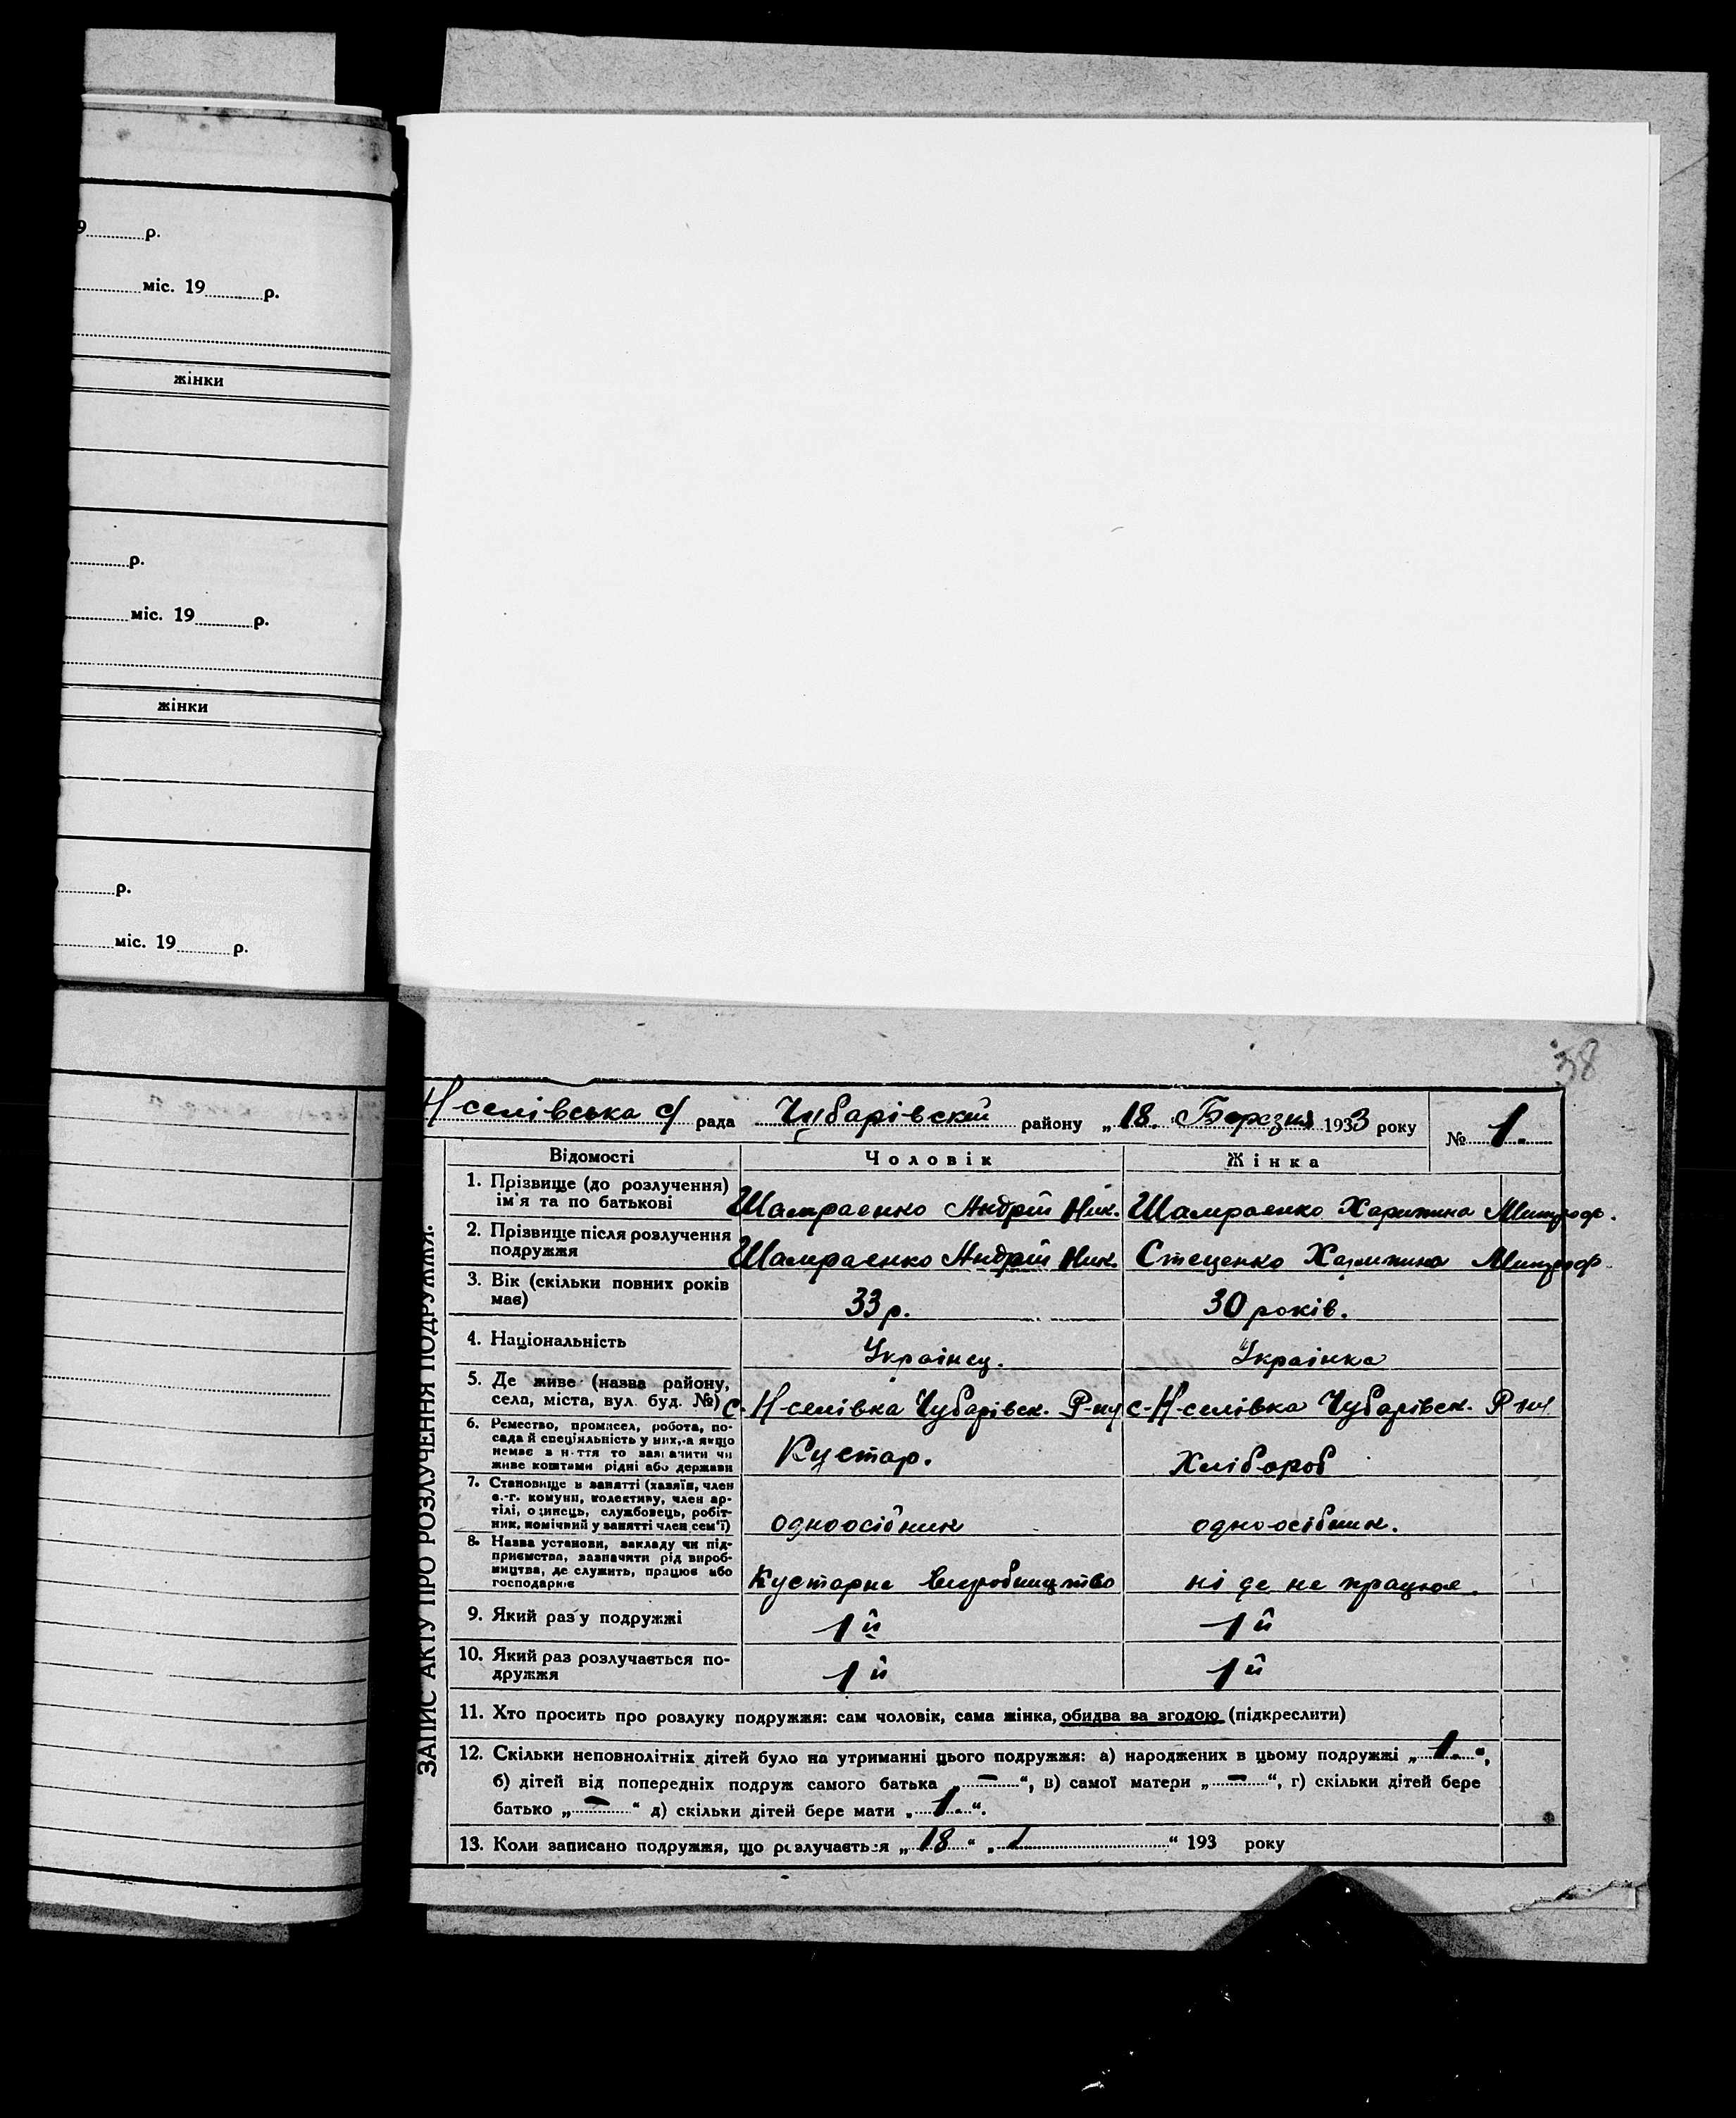 9 р.
міс. 19 р.
жінки
р.
міс. 19 р.
жінки
р.
міс. 19 р.
38
Н-селівська с/ рада Чубарівский району „18. Березня 1933 року № 1.
ЗАПИС АКТУ ПРО РОЗЛУЧЕННЯ ПОДРУЖЖЯ.
Відомості Чоловік Жінка
1. Прізвище (до розлучення) ім'я та по батькові Шамраенко Андрій Ник. Шамраенко Харитина Митроф.
2. Прізвище після розлучення подружжя Шамраенко Андрій Ник. Стеценко Харитина Митроф
3. Вік (скільки повних років має) 33 р. 30 років.
4. Національність Українец. Українка
5. Де живе (назва району, села, міста, вул. буд. №) с. Н-селівка Чубарівск. Р-ну с-Н-селівка Чубарівск. Р-ну
6. Ремество, промисел, робота, посада й спеціяльність у них, а якщо немає з н-ття то зазначити чи живе коштами рідні або держави Кустар. Хлібороб
7. Становище в занятті (хазяїн, член с.-г. комуни, колективу, член артілі, одинець, службовець, робітник, помічний у занятті член сем'ї) одноосібник одноосібник.
8. Назва установи, закладу чи підприємства, зазначити рід виробництва, де служить, працює або господарює Кустарне виробництво ні де не працює.
9. Який раз у подружжі 1й 1й
10. Який раз розлучається подружжя 1й 1й
11. Хто просить про розлуку подружжя: сам чоловік, сама жінка, обидва за згодою (підкреслити)
12. Скільки неповнолітніх дітей було на утриманні цього подружжя: а) народжених в цьому подружжі „ 1. “,
б) дітей від попередніх подруж самого батька „ – “, в) самої матери „ – “, г) скільки дітей бере
батько „ – “ д) скільки дітей бере мати „ 1. “.
13. Коли записано подружжя, що розлучається „ 18 “ „ 1 “ 193 року